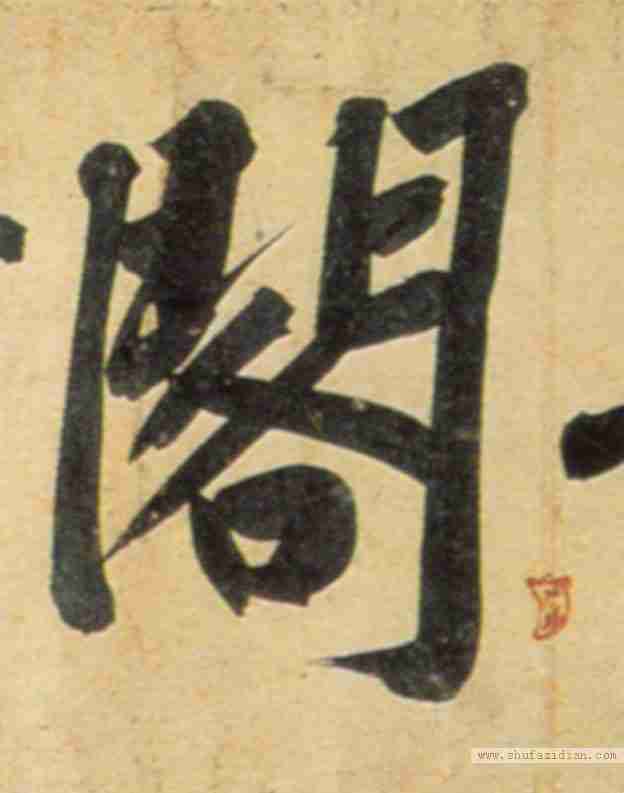 閣
www.shufazidian.com